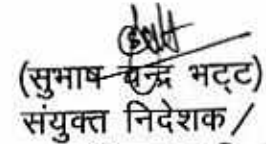 (सुभाष चन्द्र भट्ट)
संयुक्त निदेशक /